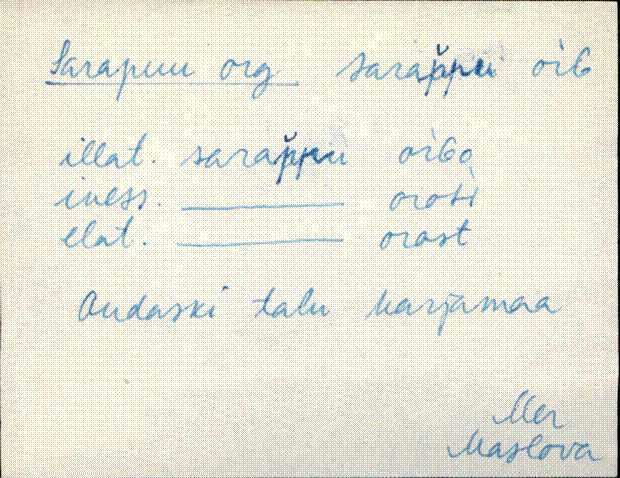 Sarapuu org sarap̆pu oŕG
illat. sarap̆pu oŕGo
iness. ——— orosi
elat. ——— orost
Oudaski talu karjamaa
Mer
Maslova